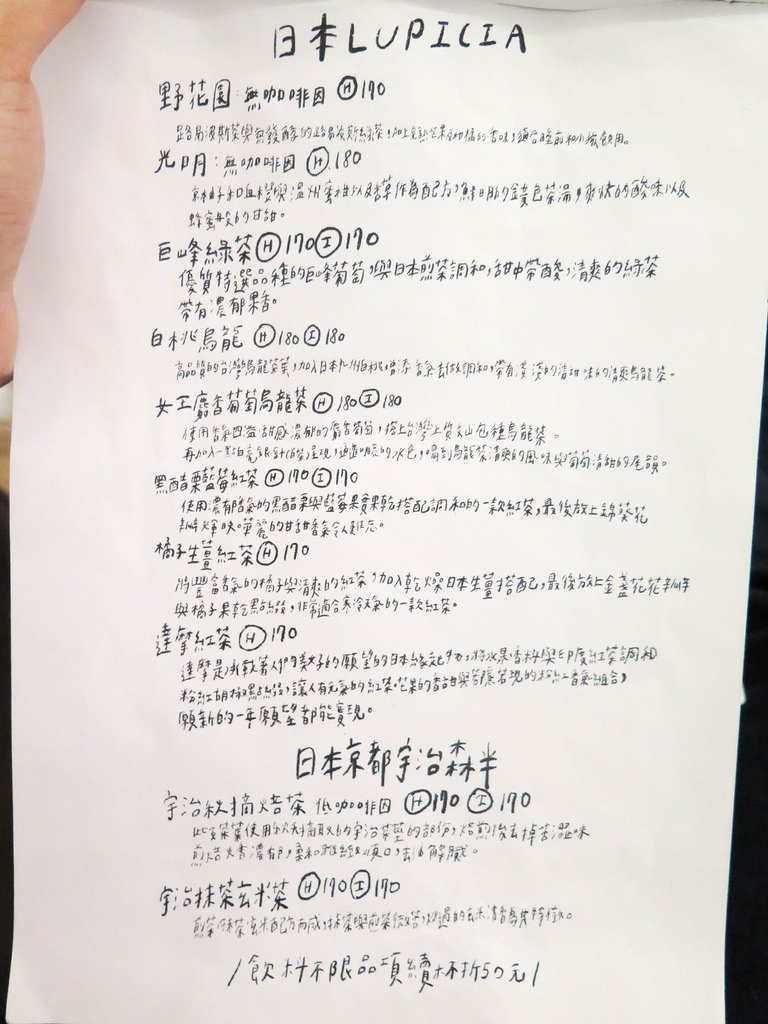 日本LUPICIA
野花園:無咖啡因 Ⓗ170
路易波斯茶與無發酵的路易波斯綠茶,加上熟芒果及柑橘的香味,適合睡前和小孩飲用。
光明:無咖啡因 Ⓗ.180
柚子和血橙與溫州蜜柑以及香草作為配方,鮮明的金黃色茶湯,爽快的酸味以及
蜂蜜般的甘甜。
巨峰綠茶Ⓗ170Ⓘ170
優質特選品種的巨峰葡萄,與日本煎茶調和,甜中帶酸,清爽的綠茶
帶有濃郁果香。
白桃烏龍 Ⓗ180 Ⓘ180
高品質的台灣烏龍茶葉,加入日本白桃增添香氣去做調和,帶有淡淡的清甜味的清爽烏龍茶。
女王麝香葡萄烏龍茶Ⓗ180Ⓘ180
使用香氣四溢甜感濃郁的麝香葡萄,搭上台灣上質文山包種烏龍茶。
再加入一點白毫銀針(白茶)呈現,通透明亮的水色,喝到烏龍茶清爽的風味與葡萄清甜的尾韻。
黑醋栗藍莓紅茶 Ⓗ170Ⓘ170
使用濃郁香氣的黑醋栗與藍莓果實果乾搭配調和的一款紅茶,最後放上錦葵花
點綴。華麗的甘甜香氣令人難忘。
橘子生薑紅茶Ⓗ170
將豐富香氣的橘子與清爽的紅茶,加入乾燥日本生薑搭配,最後放上金盞花花瓣
與橘子果乾點綴,非常適合寒冷天氣的一款紅茶。
達摩紅茶 Ⓗ170
達摩是承載著人們美好的願望的日本緣起物,將水果香料與印度紅茶調和
粉紅胡椒點綴,讓人有元氣的紅茶。芒果的香甜與若隱若現的粉紅香氣組合,
願新的一年願望都能實現。
日本京都宇治森半
宇治秋摘焙茶 低咖啡因 Ⓗ170 Ⓘ170
此款茶葉使用秋天摘取的宇治茶莖的部份,焙煎後去掉苦澀味
煎焙火香濃郁,柔和順口,去油解膩。
宇治抹茶玄米茶 Ⓗ170Ⓘ170
煎茶抹茶玄米配方而成,抹茶與煎茶微苦,炒過的玄米清香為其特徵。
/飲料不限品項續杯折50元/